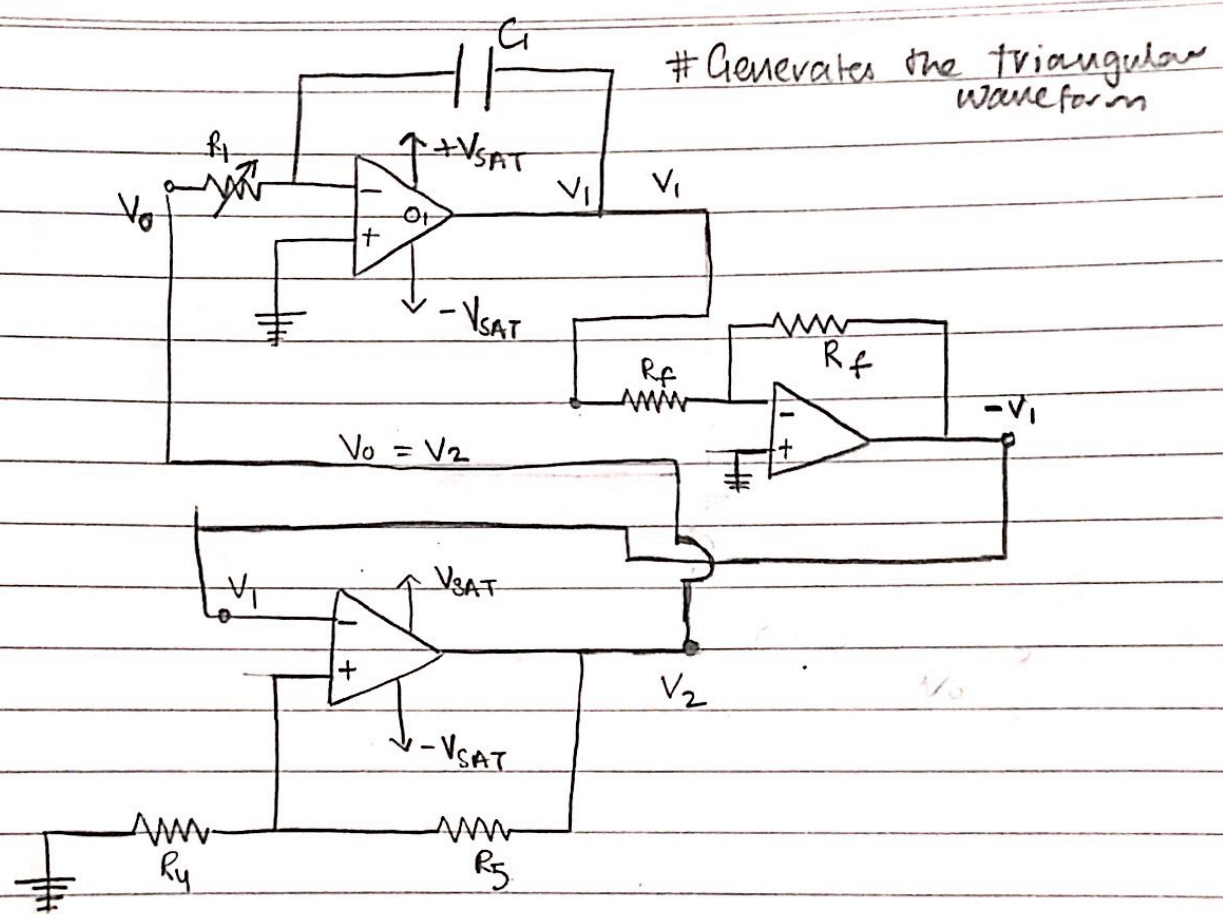 C1
# Generates the triangular
waveform
R1
+VSAT
V0
-
O1
+
V1
V1
-VSAT
Rf
Rf
-
+
-V1
V0 = V2
V1
VSAT
-
+
V2
-VSAT
R4
R5